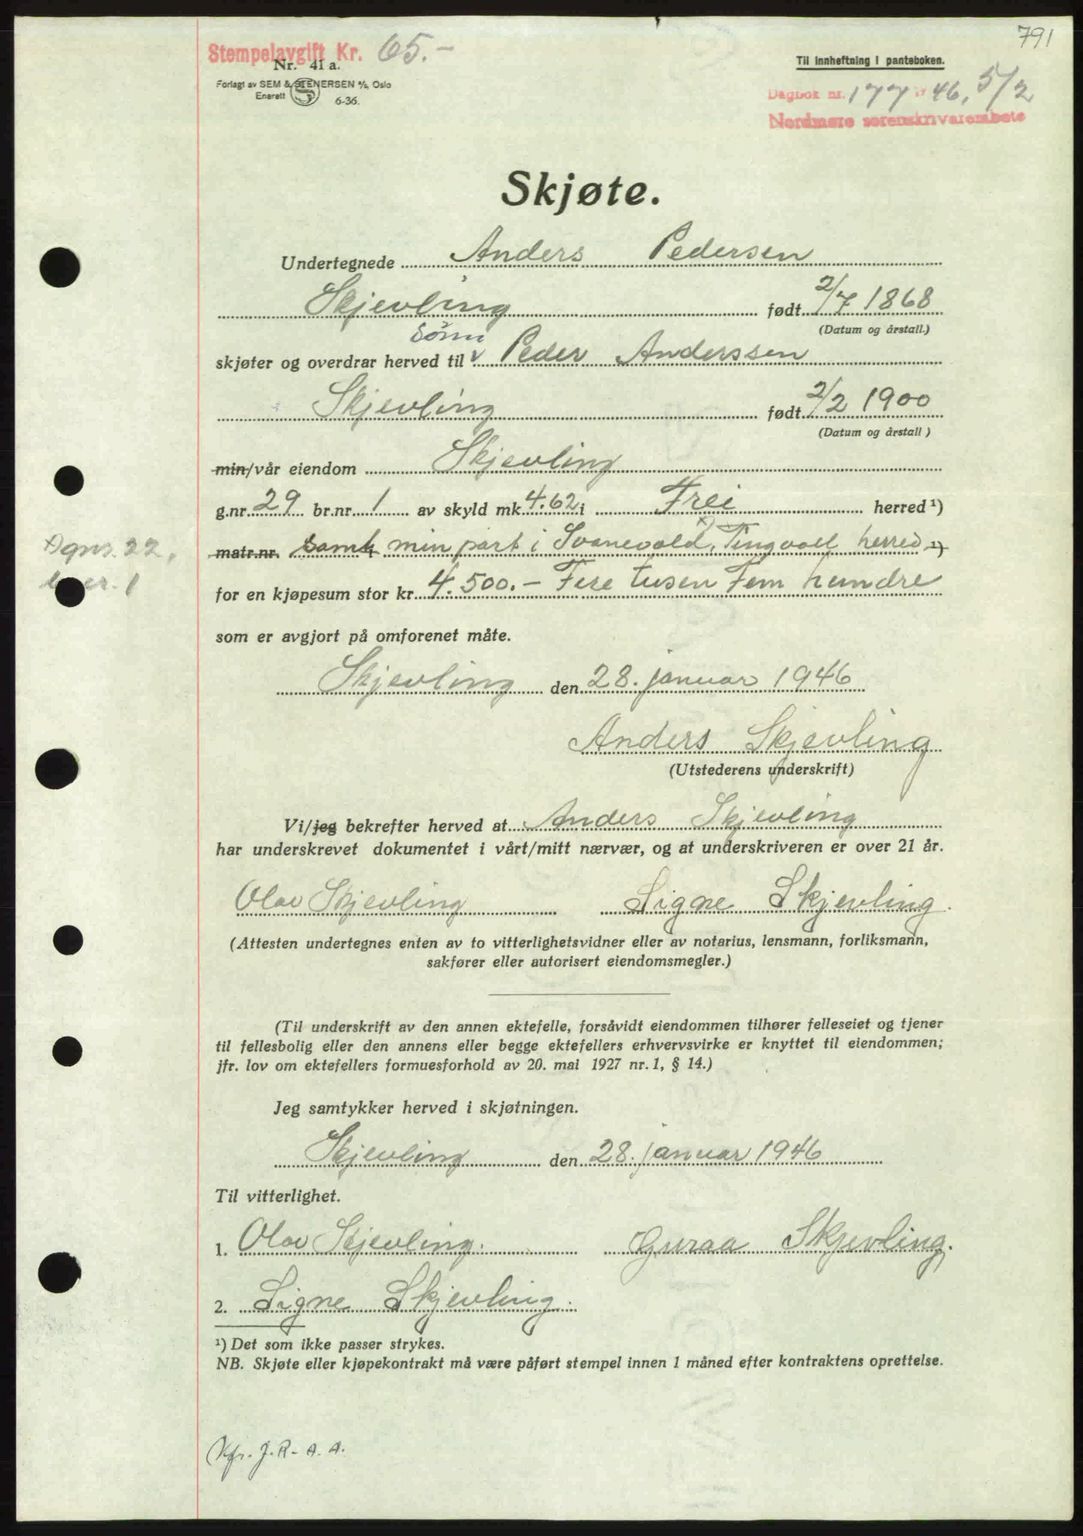 791
Stempelavgift Kr. 65.-
Nr. 41 a.
Forlagt av SEM & STENERSEN A/S, Oslo
Enerett 6-36.
Til innheftning i panteboken.
Dagbok nr. 177 1946, 5/2
Nordmøre sorenskriverembete
Skjøte.
Undertegnede Anders Pedersen
Skjevling født 2/7 1868
(Datum og årstall.)
sønn
skjøter og overdrar herved til v Peder Anderssen
Skjevling født 2/2 1900
(Datum og årstall)
min/vår eiendom Skjevling
g.nr. 29 br.nr. 1 av skyld mk. 4.62 i Frei herred ¹)
matr.nr. samt min part i Svanevold, x) Tingvoll herred ¹)
gnr. 22,
br. 1
for en kjøpesum stor kr. 4.500.- Fire tusen Fem hundre
som er avgjort på omforenet måte.
Skjevling den 28. januar 1946
Anders Skjevling
(Utstederens underskrift)
Vi/jeg bekrefter herved at Anders Skjevling
har underskrevet dokumentet i vårt/mitt nærvær, og at underskriveren er over 21 år.
Olav Skjevling Signe Skjevling.
(Attesten undertegnes enten av to vitterlighetsvidner eller av notarius, lensmann, forliksmann,
sakfører eller autorisert eiendomsmegler.)
(Til underskrift av den annen ektefelle, forsåvidt eiendommen tilhører felleseiet og tjener
til fellesbolig eller den annens eller begge ektefellers erhvervsvirke er knyttet til eiendommen;
jfr. lov om ektefellers formuesforhold av 20. mai 1927 nr. 1, § 14.)
Jeg samtykker herved i skjøtningen.
Skjevling den 28. januar 1946
Til vitterlighet.
1. Olav Skjevling. Guraa Skjevling.
2. Signe Skjevling.
¹) Det som ikke passer strykes.
NB. Skjøte eller kjøpekontrakt må være påført stempel innen 1 måned efter kontraktens oprettelse.
J.R. a. a.